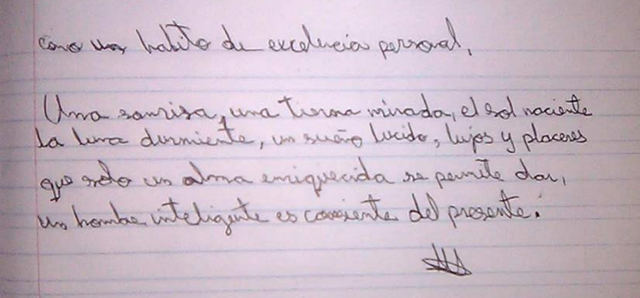 como un habito de excelencia personal,
Una sonrisa, una tierna mirada, el sol naciente
la luna durmiente, un sueño lucido, lujos y placeres
que solo un alma enriquecida se permite dar,
un hombre inteligente es consiente del presente.